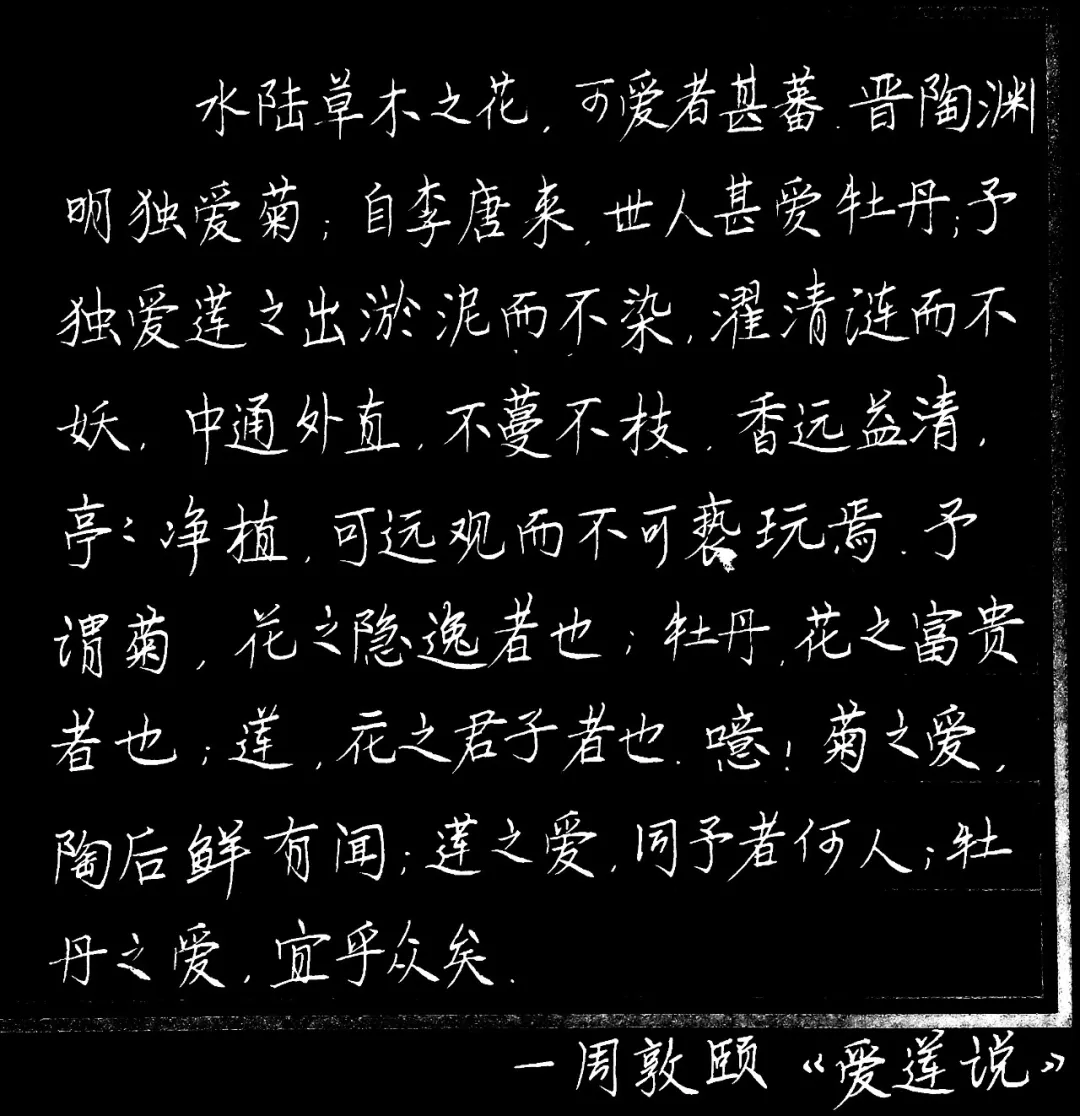 水陆草木之花,可爱者甚蕃.晋陶渊
明独爱菊;自李唐来,世人甚爱牡丹;予
独爱莲之出淤泥而不染,濯清涟而不
妖,中通外直,不蔓不枝,香远益清,
亭々净植,可远观而不可亵玩焉.予
谓菊,花之隐逸者也;牡丹,花之富贵
者也;莲,花之君子者也.噫!菊之爱,
陶后鲜有闻;莲之爱,同予者何人;牡
丹之爱,宜乎众矣.
—周敦颐《爱莲说》